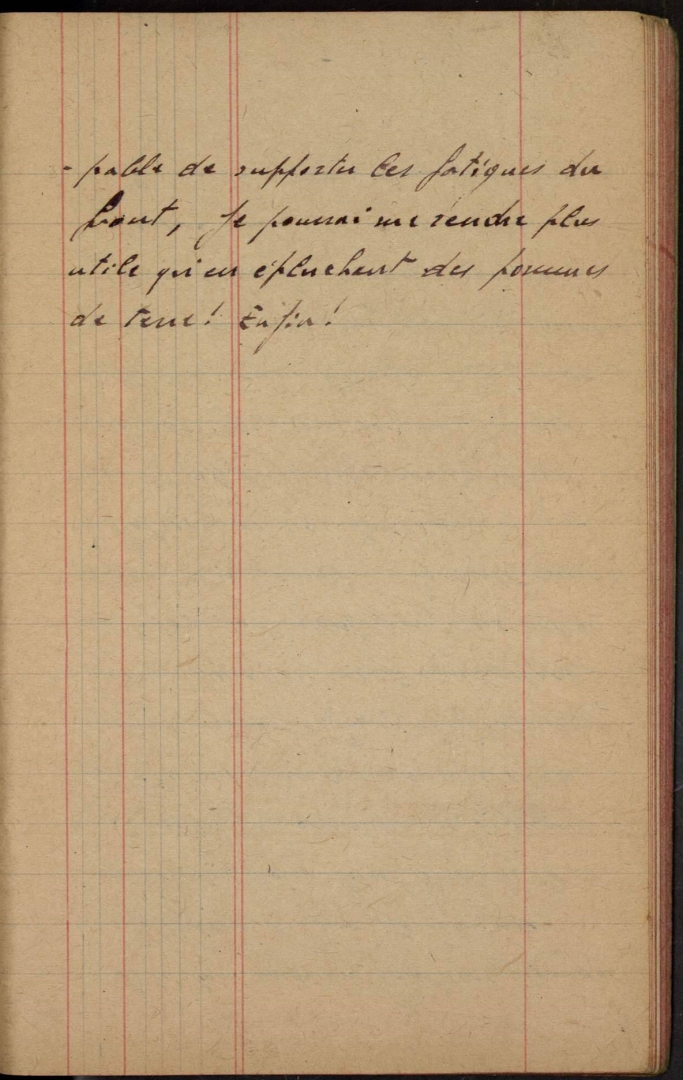 -pable de supporter les fatigues du
front, je pourrai me rendre plus
utile qu'en épluchant des pommes
de terre! Enfin!